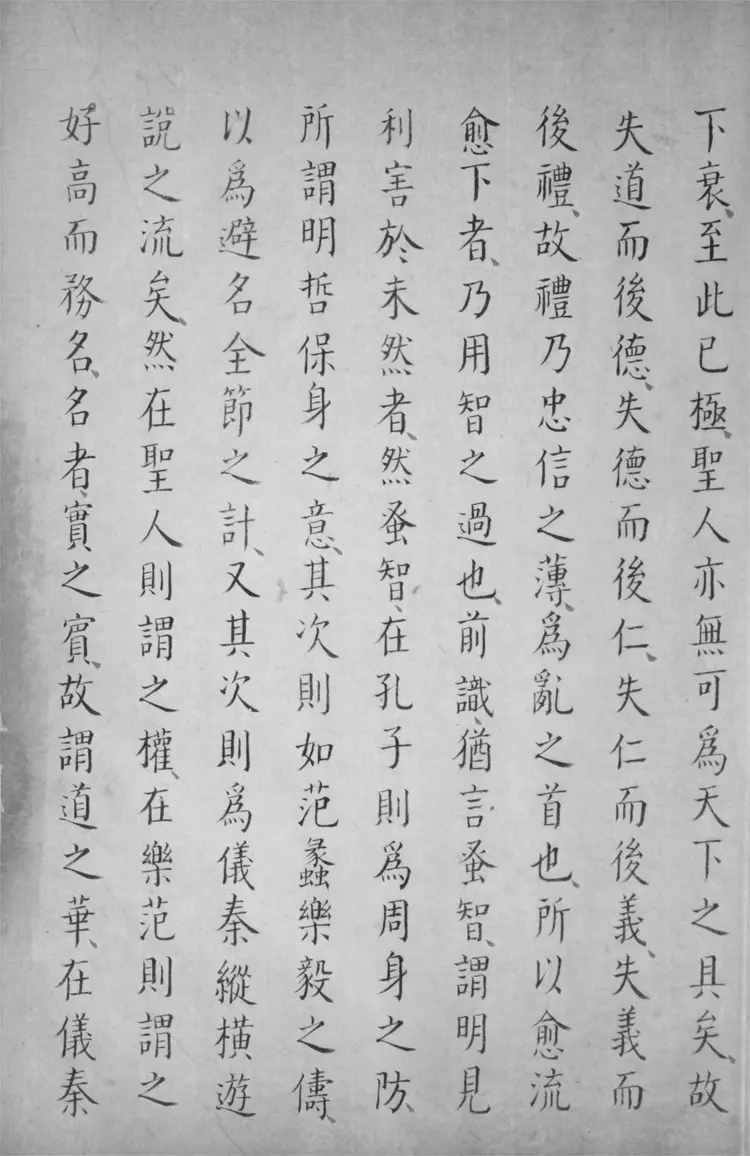 下衰、至此已極、聖人亦無可爲天下之具矣、故
失道而後德、失德而後仁、失仁而後義、失義而
後禮、故禮乃忠信之薄、爲亂之首也、所以愈流
愈下者、乃用智之過也、前識、猶言蚤智、謂明見
利害於未然者、然蚤智、在孔子則爲周身之防、
所謂明哲保身之意、其次則如范蠡樂毅之儔、
以爲避名全節之計、又其次則爲儀秦縱橫遊
說之流矣、然在聖人則謂之權、在樂范則謂之
好高而務名、名者、實之賓、故謂道之華、在儀秦